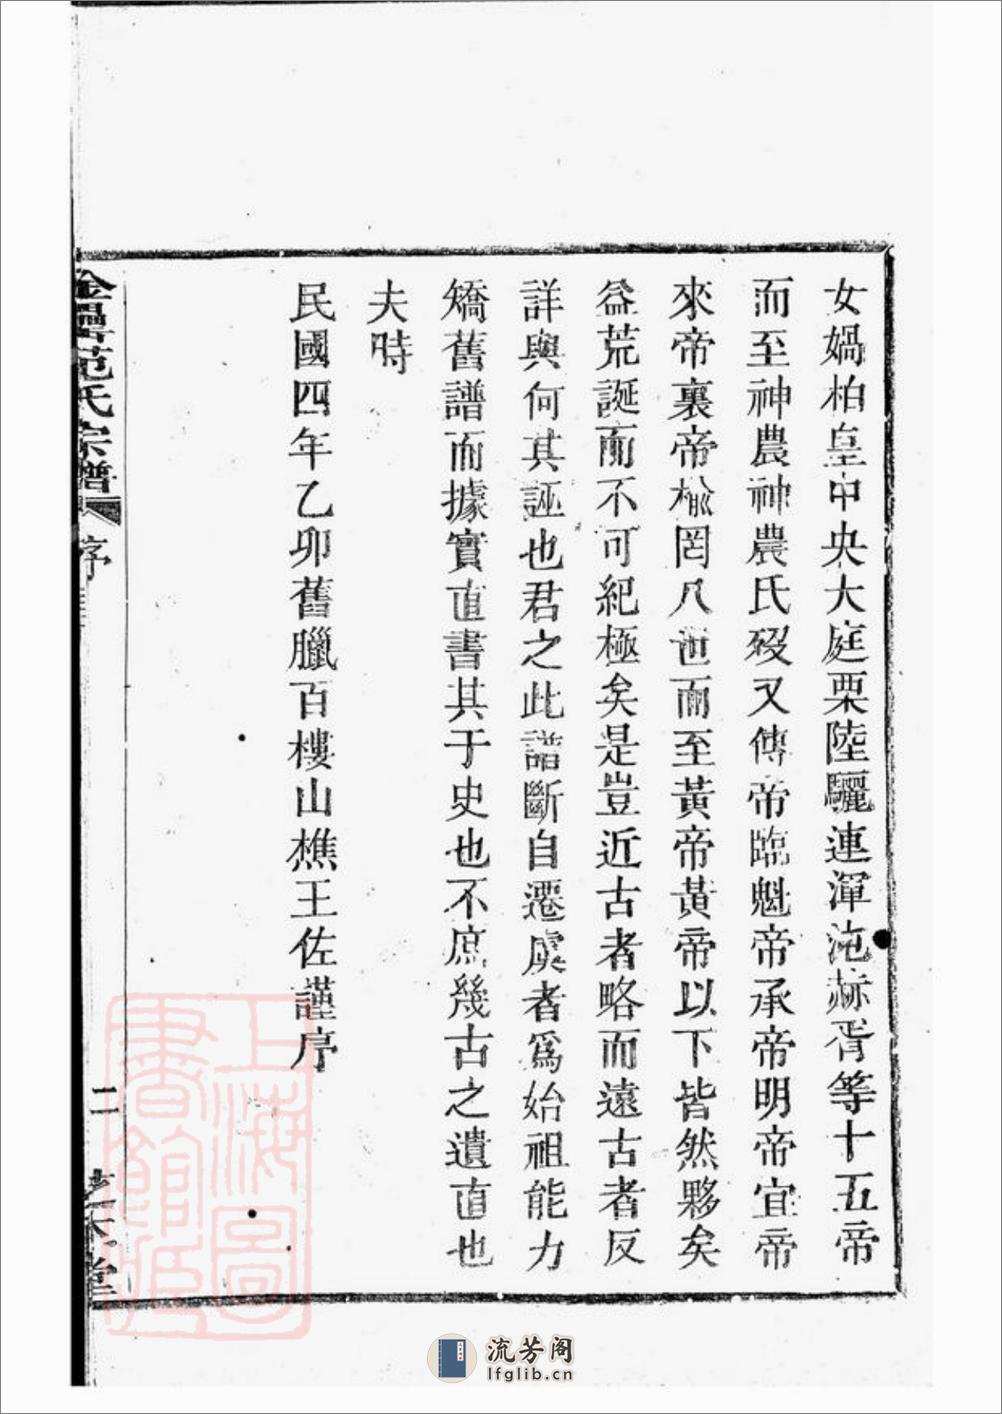 女媧柏皇中央大庭栗陸驪連渾沌赫胥等十五帝
而至神農神農氏歿又傳帝臨魁帝承帝明帝宜帝
來帝裏帝楡罔八世而至黃帝黃帝以下皆然夥矣
益荒誕而不可紀極矣是豈近古者略而遠古者反
詳與何其誣也君之此譜斷自遷虞者爲始祖能力
矯舊譜而據實直書其于史也不庶幾古之遺直也
夫時
民國四年乙卯舊臘百樓山樵王佐謹序
范氏宗譜
序
二
堂
上海圖書館藏
流芳阁
lfglib.cn